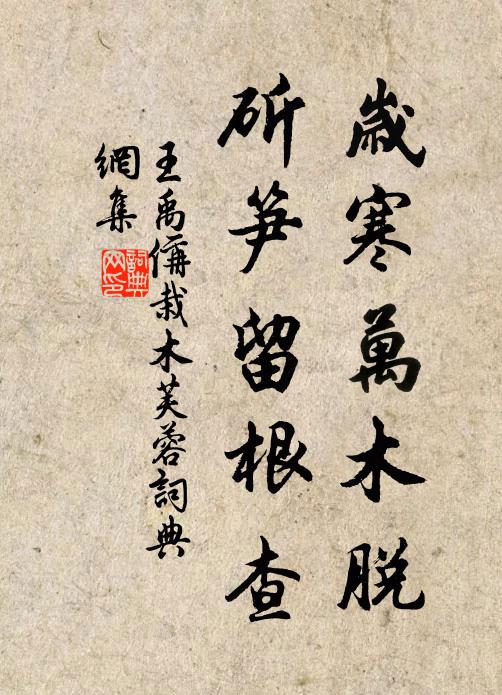 歲寒萬木脫
斫笋留根查
王禹偁栽木芙蓉詞典
網集
詞典
网印